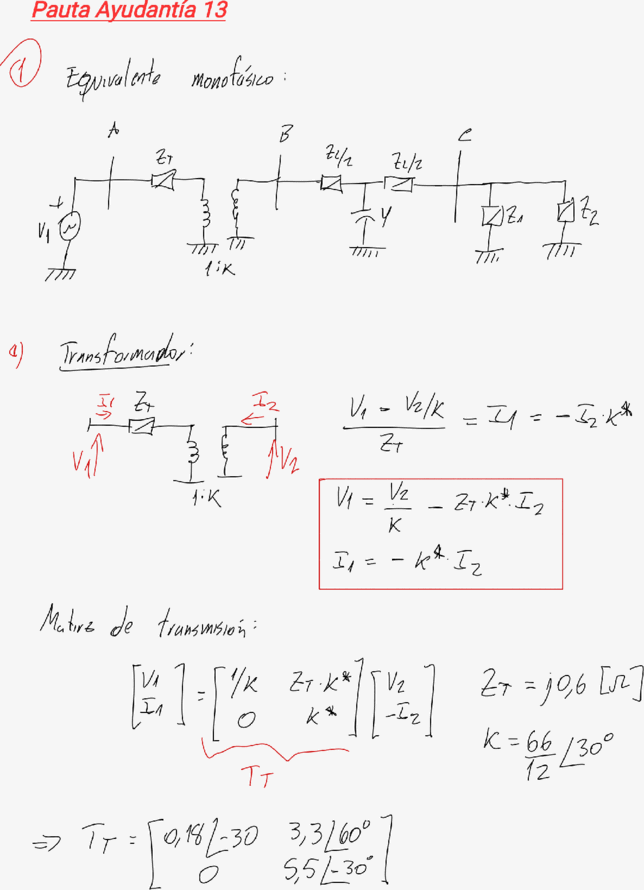 Pauta Ayudantía 13
1 Equivalente monofásico:
A B C
ZT ZL/2 ZL/2
+ V1 Y Z1 Z2
1:K
a) Transformador:
I1 ZT I2
V1 V2
1:K
(V1 - V2/K) / ZT = I1 = -I2·K*
V1 = V2/K - ZT·K*·I2
I1 = - K*·I2
Matriz de transmisión:
[V1 I1] = [1/K ZT·K* 0 K*] [V2 -I2]
TT
ZT = j0,6 [Ω]
K = 66/12 ∠30°
=> TT = [0,18∠-30 3,3∠60° 0 5,5∠-30°]